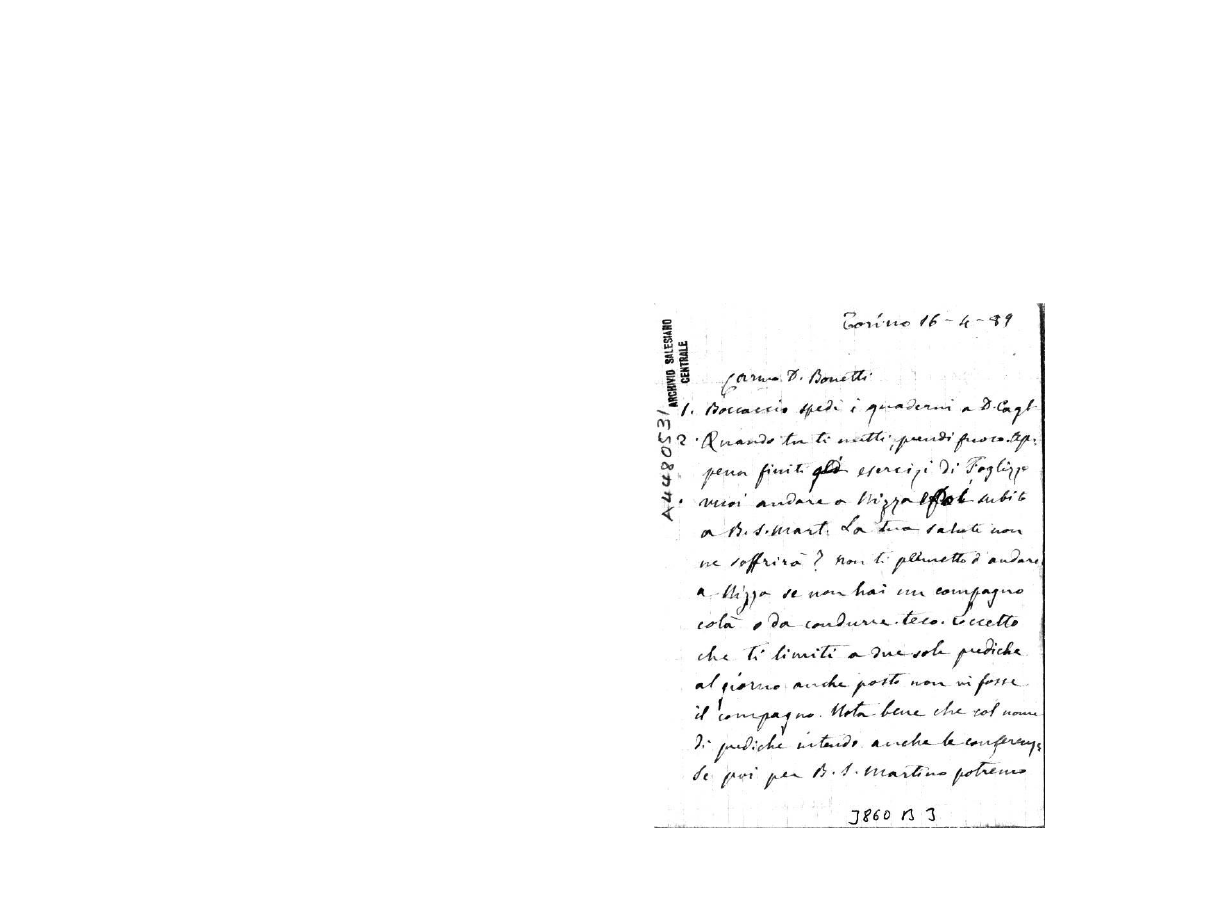 Torino 16-4-89
ARCHIVIO SALESIANO
CENTRALE
A4480531
Carmo D. Bonetti
1. Boccaccio spedì i quaderni a D. Cagl.
2. Quando tu ti metti, prendi fuoco. Ap-
pena finiti gli esercizi di Foglizzo
vuoi andare a Nizza subito
a B. S. Mart. La tua salute non
ne soffrirà? Non ti permetto d'andare
a Nizza se non hai un compagno
colà o da condurre teco. Eccetto
che ti limiti a due sole prediche
al giorno anche posto non vi fosse
il compagno. Nota bene che col nome
di prediche intendo anche le conferenze
Se poi per B. S. Martino potremo
3860 B 3